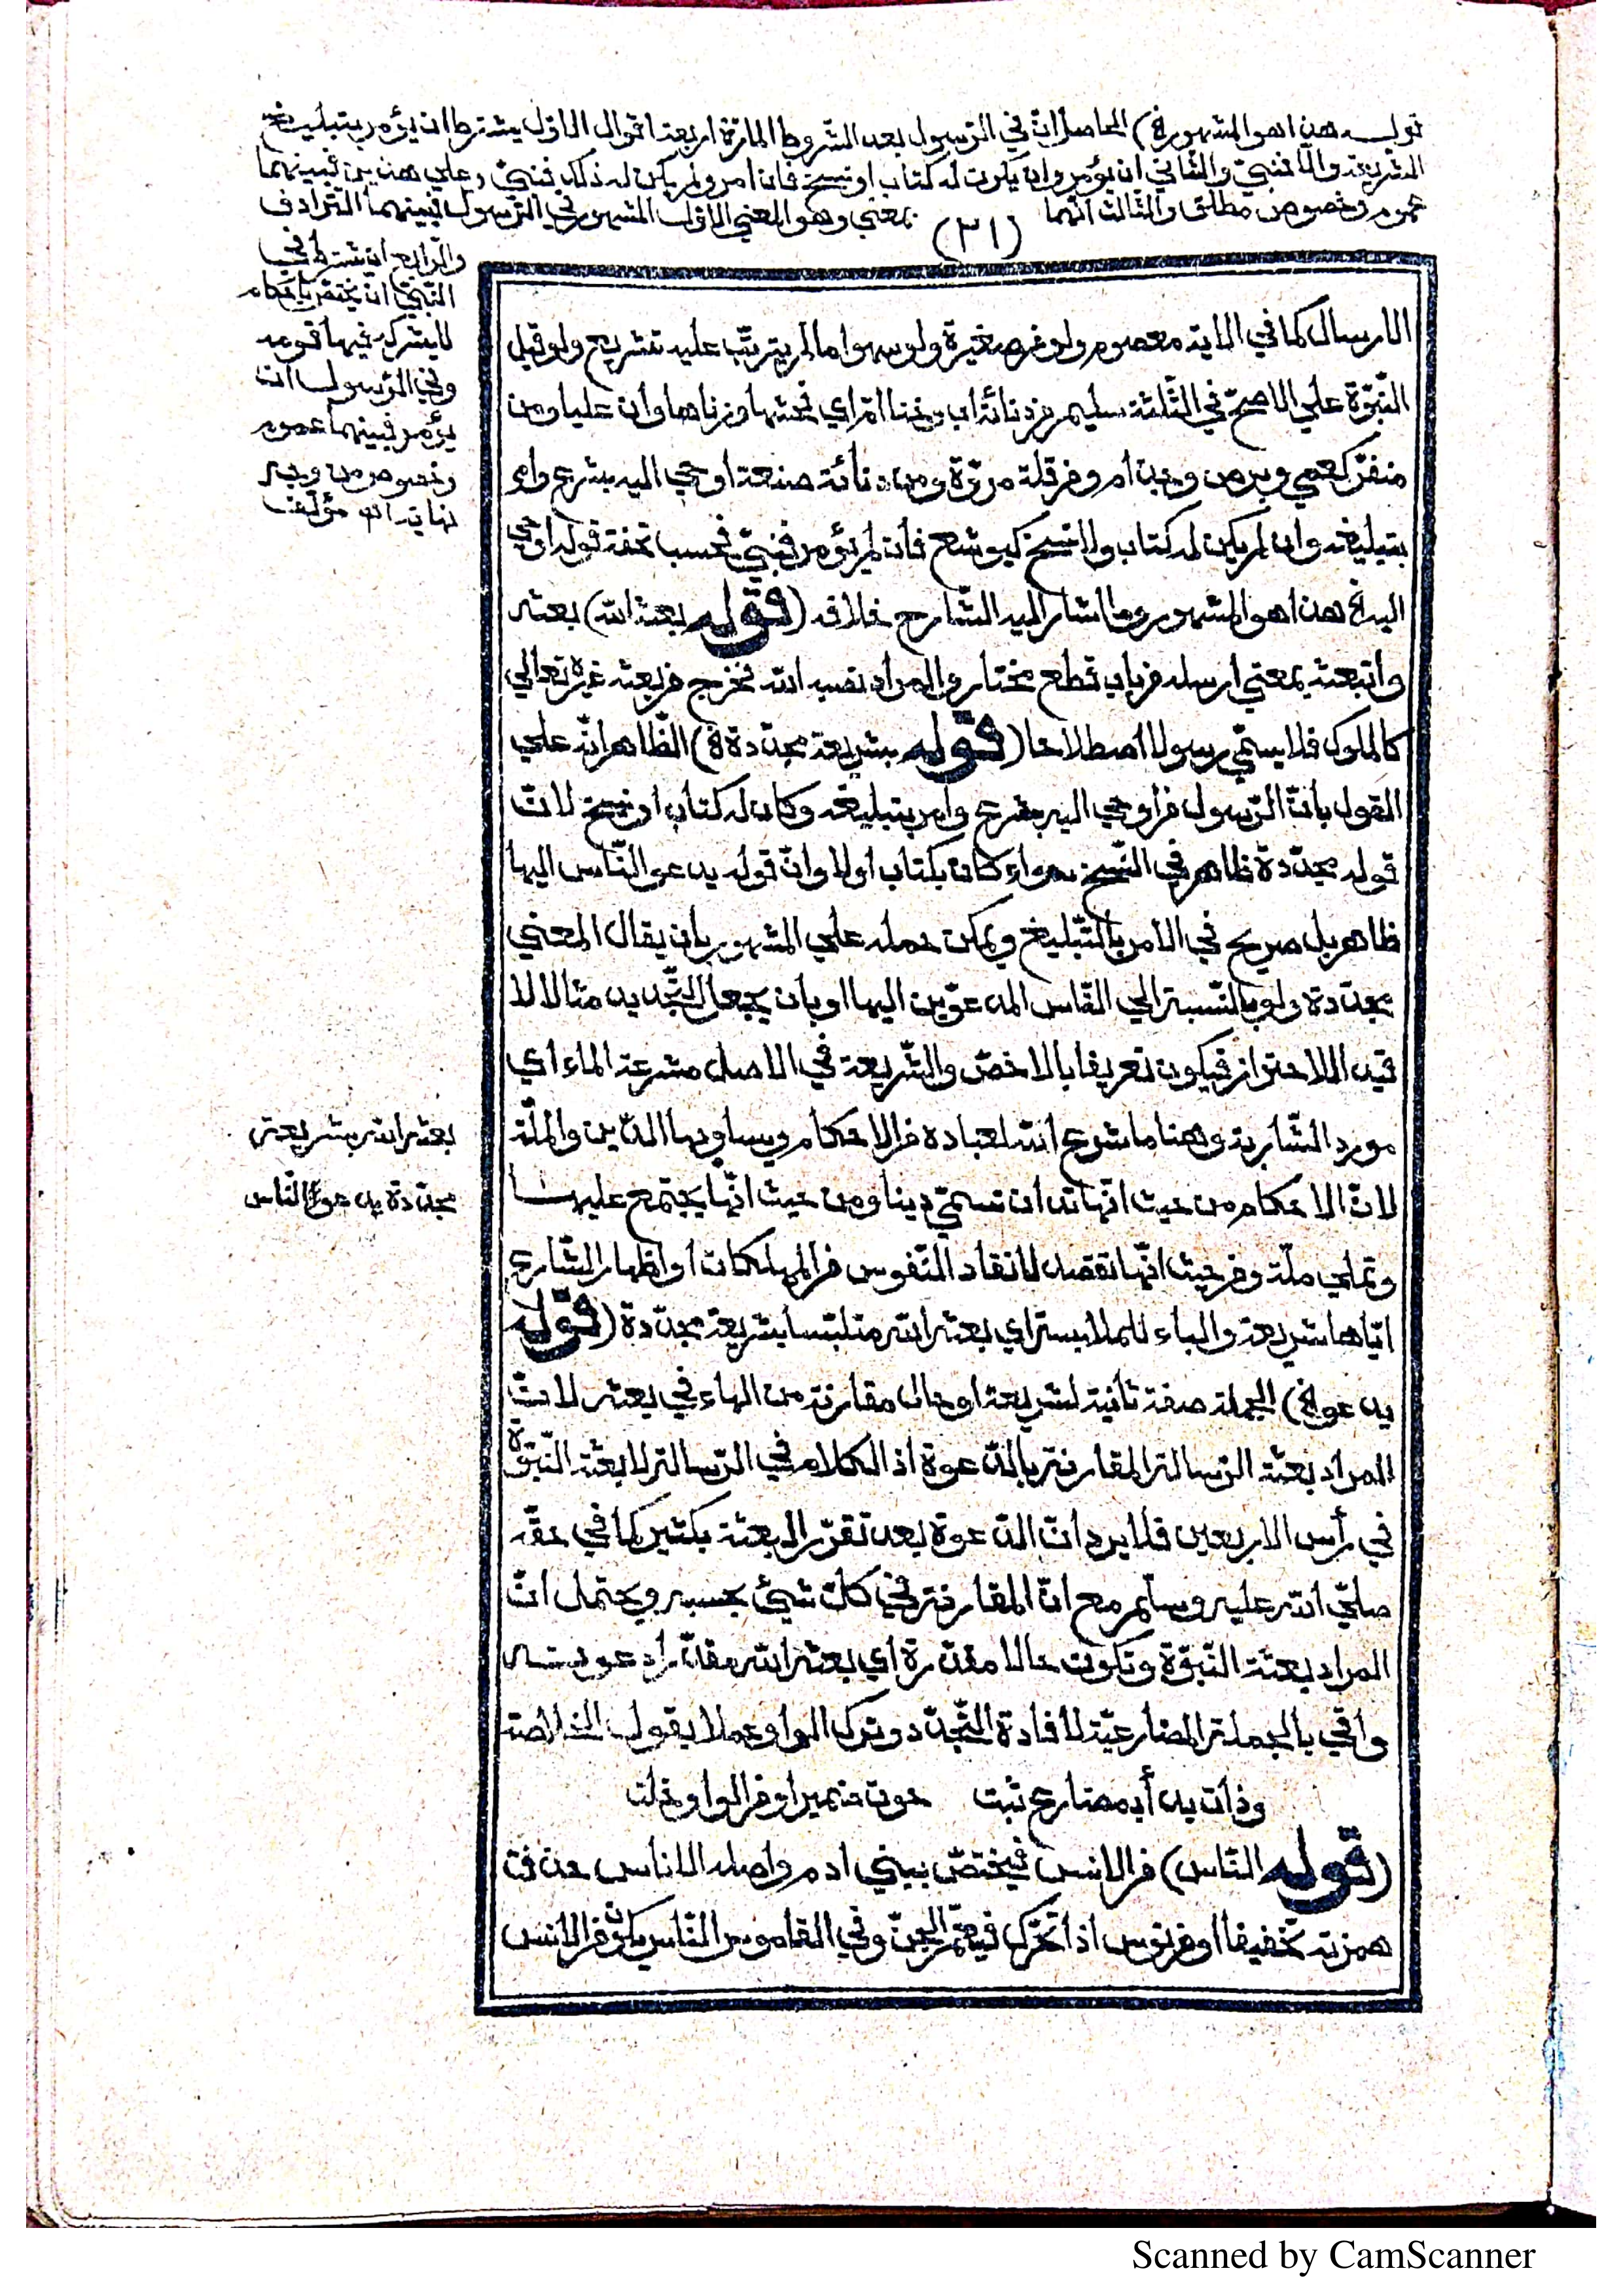 قوله هذا هو المشهور الخ) الحاصل انّ في الرّسول بعد الشّروط المارّة اربعة اقوال الاوّل يشترط ان يؤمر بتبليغ
الشّريعة والّا فنبيّ والثّاني ان يؤمر وان يكون له كتاب او نسخ فان امر ولم يكن له ذلك فنبيّ وعلي هذين فبينهما
عموم وخصوص مطلق والثّالث انّهما بمعني وهو المعني الاوّل المشهور في الرّسول فبينهما التّرادف
(٣١)
والرّابع ان يشترط في
النّبيّ ان يختصّ باحكام
لا يشركه فيها قومه
وفي الرّسول ان
يؤمر فبينهما عموم
وخصوص من وجه
نهاية اه مؤلّف
الارسال كما في الاية معصوم ولو عن صغيرة ولو سهوا ما لم يترتّب عليه تشريع ولو قبل
النّبوّة علي الاصحّ في الثّلثة سليم عن دنائة اب وخنا امّ اي فحشها وزناها وان عليا ومن
منفّر كعمي وبرص وجذام ومن قلة مروّة ومن دنائة صنعة اوحي اليه بشرع وامر
بتبليغه وان لم يكن له كتاب ولا نسخ كيوشع فان لم يؤمر فنبيّ فحسب تحفة قوله اوحي
اليه الخ هذا هو المشهور وما اشار اليه الشّارح خلافه (قوله بعثه الله) بعثه
وابتعثه بمعني ارسله من باب قطع مختار والمراد نفسه الله فخرج من بعثه غيره تعالي
كالملوك فلا يسمّي رسولا اصطلاحا (قوله بشريعة مجدّدة الخ) الظّاهر انّه علي
القول بانّ الرّسول من اوحي اليه بشرع وامر بتبليغه وكان له كتاب او نسخ لانّ
قوله مجدّدة ظاهر في النّسخ سواء كان بكتاب اولا وانّ قوله يدعو النّاس اليها
ظاهر بل صريح في الامر بالتّبليغ ويمكن حمله علي المشهور بان يقال المعني
مجدّدة ولو بالنّسبة الي النّاس المدعوّين اليها او بان يجعل التّجديد مثالا لا
قيدا للاحتراز فيكون تعريفا بالاخصّ والشّريعة في الاصل مشرعة الماء اي
مورد الشّاربة وهنا ما شرع الله لعباده من الاحكام ويساويها الدّين والملّة
لانّ الاحكام من حيث انّها تدان تسمّي دينا ومن حيث انّها يجتمع عليها
وتملي ملّة ومن حيث انّها تقصد لانقاذ النّفوس من المهلكات او اظهار الشّارع
ايّاها شريعة والباء للملابسة اي بعثه الله متلبّسا بشريعة مجدّدة (قوله
يدعو الخ) الجملة صفة ثانية لشريعة او حال مقارنة من الهاء في بعثه لانّ
المراد بعثة الرّسالة المقارنة بالدّعوة اذ الكلام في الرّسالة لا بعثة النّبوّة
في رأس الاربعين فلا يرد انّ الدّعوة بعد تقرّر البعثة بكثير كما في حقّه
صلّي الله عليه وسلّم مع انّ المقارنة في كلّ شيئ بحسبه ويحتمل انّ
المراد بعثة النّبوّة وتكون حالا مقدّرة اي بعثه الله مقدّرا دعوته
واتي بالجملة المضارعيّة لافادة التّجدّد وترك الواو عملا بقول الخلاصة
وذات بدأ بمضارع ثبت حوت ضميرا ومن الواو خلت
(قوله النّاس) من الانس فيختصّ ببني ادم واصله الاناس حذفت
همزته تخفيفا او من نوس اذا تحرّك فيعمّ الجنّ وفي القاموس النّاس يكون من الانس
بعثه الله بشريعة
مجدّدة يدعو النّاس
Scanned by CamScanner